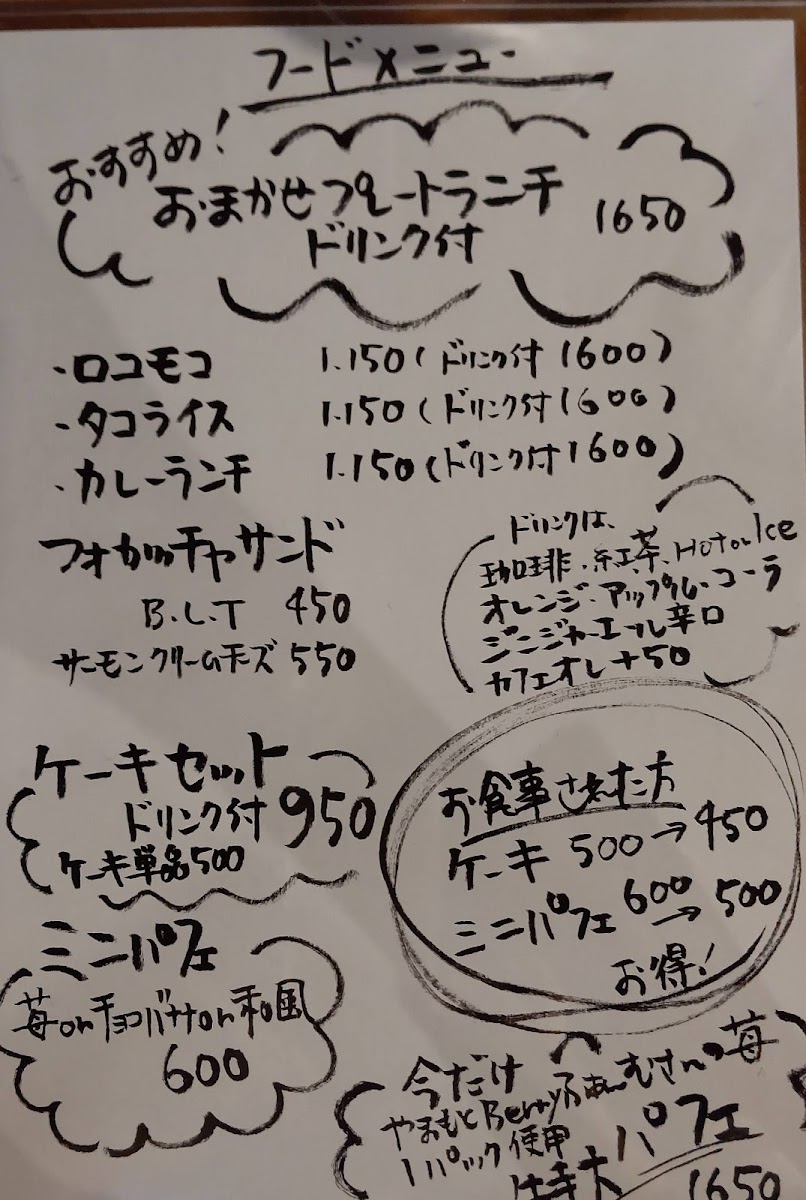 フードメニュー
おすすめ!
おまかせプレートランチ 1650
ドリンク付
・ロコモコ 1.150(ドリンク付1600)
・タコライス 1.150(ドリンク付1600)
・カレーランチ 1.150(ドリンク付1600)
フォカッチャサンド
B.L.T 450
サーモンクリームチーズ 550
ドリンクは、
珈琲・紅茶、Hot or Ice
オレンジ・アップル・コーラ
ジンジャーエール辛口
カフェオレ+50
ケーキセット
ドリンク付 950
ケーキ単品500
お食事された方
ケーキ 500→450
ミニパフェ 600→500
お得!
ミニパフェ
苺orチョコバナナor和風
600
今だけ
やまもとBerryふぁーむさんの苺
1パック使用
特大パフェ
1650